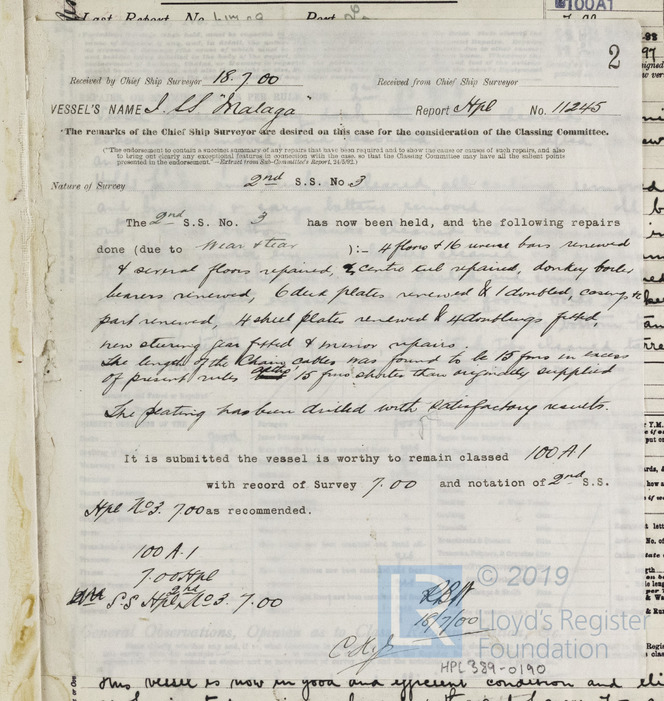 Last Report, No.
100A1
2
Received by Chief Ship Surveyor 18.7.00 Received from Chief Ship Surveyor
VESSEL'S NAME I. SS "Malaga" Report Hpl No. 11245
The remarks of the Chief Ship Surveyor are desired on this case for the consideration of the Classing Committee.
("The endorsement to contain a succinct summary of any repairs that have been required and to show the cause or causes of such repairs, and also
to bring out clearly any exceptional features in connection with the case, so that the Classing Committee may have all the salient points
presented in the endorsement."—Extract from Sub-Committee's Report, 24/3/92.)
Nature of Survey 2nd S.S. No 3
The 2nd S.S. No. 3 has now been held, and the following repairs
done (due to Wear & tear ):- 4 floors & 16 reverse bars renewed
& several floors repaired, & centre keel repaired, donkey boiler
bearers renewed, 6 deck plates renewed & 1 doubled, casings &c
part renewed, 4 shell plates renewed & 4 doublings fitted,
new steering gear fitted & minor repairs.
The length of the Chain cables was found to be 15 fms in excess
of present rules altho' 15 fms shorter than originally supplied
The plating has been drilled with satisfactory results.
It is submitted the vessel is worthy to remain classed 100 A.1
with record of Survey 7.00 and notation of 2nd S.S.
Hpl No 3. 7.00 as recommended.
100 A.1
7.00 Hpl
2nd S.S Hpl No 3. 7.00
18/7/00
© 2019
Lloyd's Register
Foundation
HPL389-0190
General Observations, Opinion as to Class
This vessel is now in good and efficient condition and eli